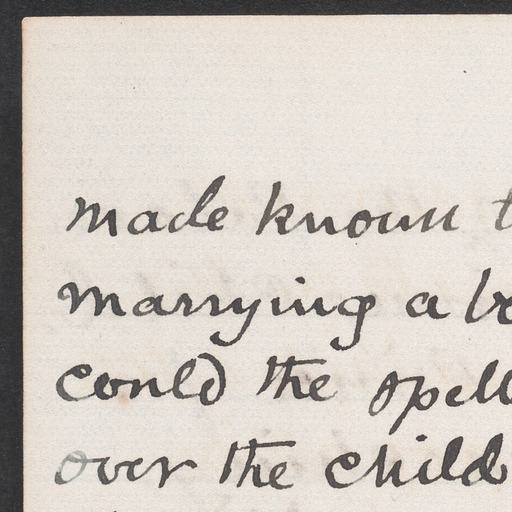 made known t
marrying a be
could the spell
over the child